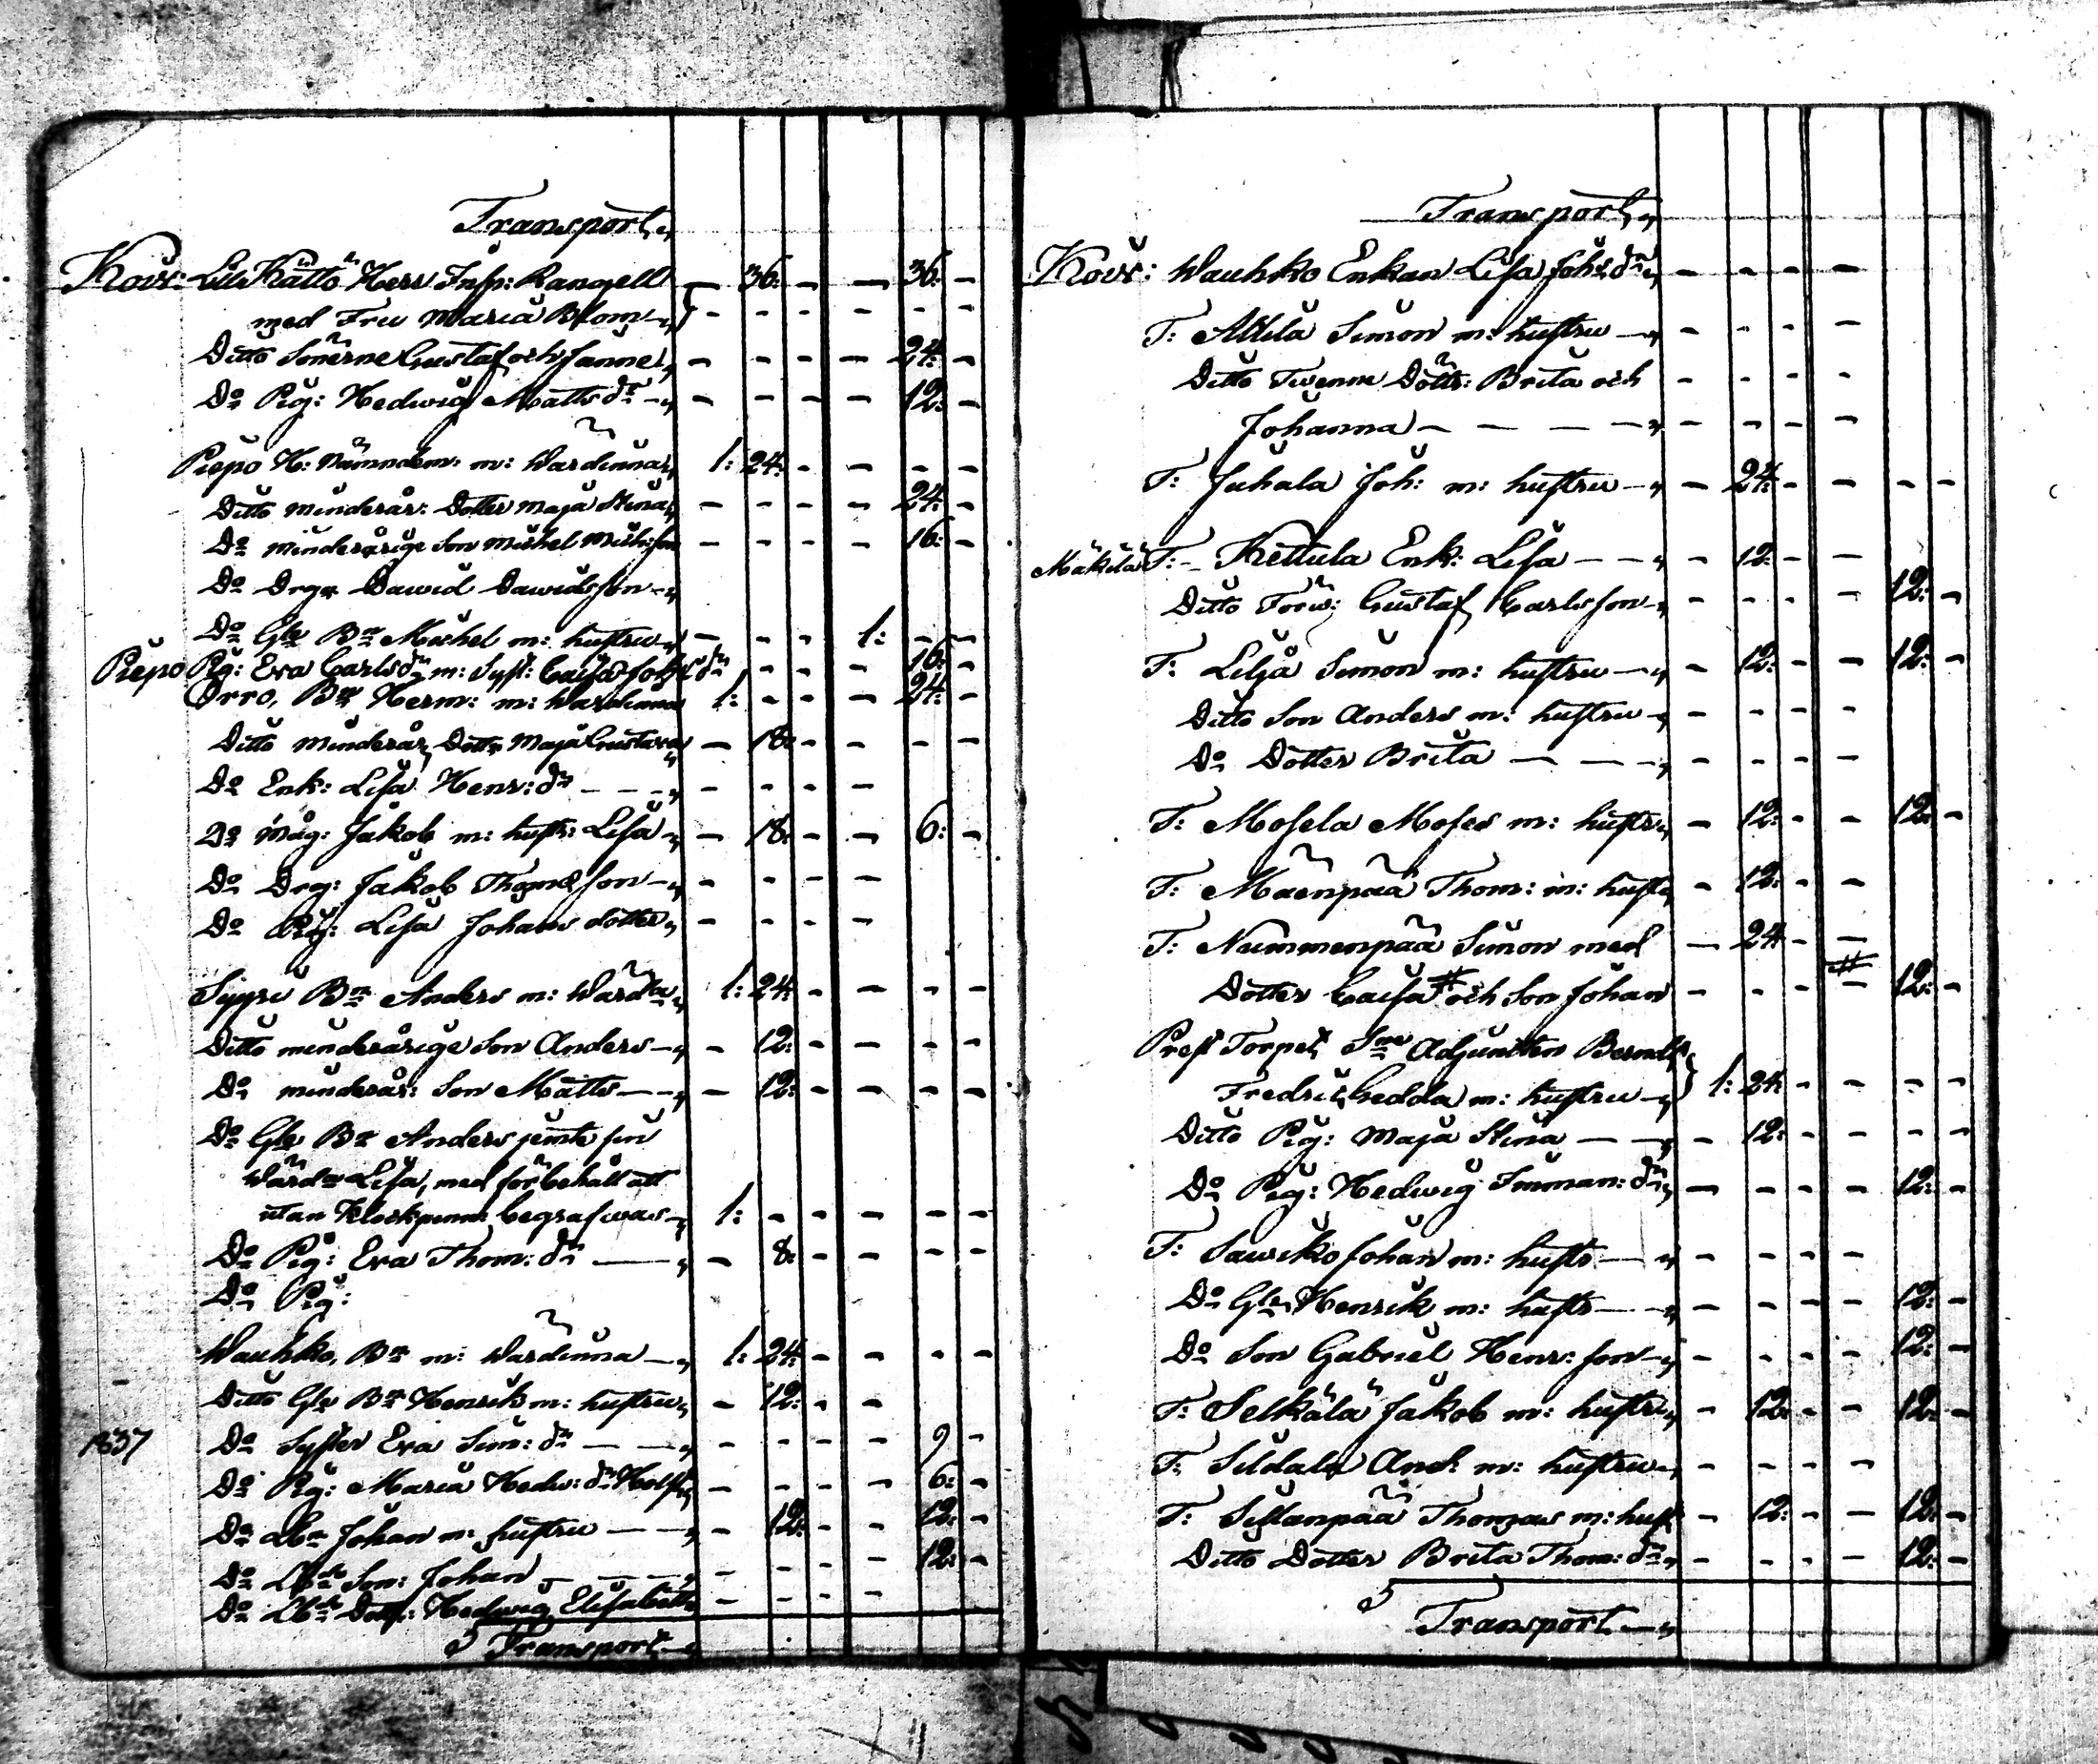 Transport „
Koivr: Lill Kättö Herr Insp: Rangell — 36: — — 36: —
med Fru Maria Blom — „ - - - - - -
Ditto Sönerne Gustaf och Janne „ - - - - 24: -
Do Pig: Hedwig Matts dr — „ - - - - 12: -
Piepo H: Nämndem: m: Wärdinna „ 1: 24: - - - -
Ditto minderår: Dotter Maja Stina „ - - - - 24: -
Do minderårige Son Michel Mich:son - - - - 16: -
Do Drg Dawid Dawidsson - „
Do Gle Bn Michel m: hustru „ - - - 1: - -
Piepo Pig: Eva Carlsdr m: Syst: Caisa Joh dr - - - - 16:
Orro, Bn Herm: m: Wärdinna 1: - - - 24: -
Ditto minderår Dottr Maja Gustava „ - 18: - - - -
Do Enk: Lisa Henr: dr - - - „ - - - -
Do Måg: Jakob m: hustr: Lisa „ - 18: - - 6: -
Do Drg: Jakob Thomæson — „ - - - -
Do Pig: Lisa Johans dotter „ - - - -
Syyri Bn Anders m: Wärda „ 1: 24: - - - -
Ditto minderårige Son Anders — „ - 12: - - - -
Do minderår: Son Matts — — „ - 12: - - - -
Do Gle Bn Anders jemte sin
Wärda Lisa, med förbehåll att
utan Klockpenn: begrafwas — „ 1: - - - - -
Do Pig: Eva Thom: dr — „ - 8: - - - -
Do Pig:
Wauhko, Bn m: Wärdinna — „ 1: 24: - - - -
Ditto Gle Bn Henrik m: hustru „ - 12: - -
1837 Do Syster Eva Sim: dr — — „ - - - - 9 -
Do Pig: Maria Hedw: dr „ - - - - 6: -
Do Johan m: hustru — — „ - 12: - - 12: -
Do Son: Johan — — „ - - - - 12: -
Do Dottr: Hedwig Elisabeth - - - -
Transport — „
Transport „
Koivr: Wauhko Enkan Lisa Johs dr „ - - - -
T: Attila Simon m: hustru — „ - - - -
Ditto Twenne Döttr: Brita och - - - -
Johanna — — — — „ - - - -
T: Juhala Joh: m: hustru — „ - 24: - - - -
Mäkilä T: - Kettula Enk: Lisa — — „ - 12: - -
Ditto Förw: Gustaf Carlsson „ - - - - 12: -
T: Lilja Simon m: hustru — „ - 12: - - 12: -
Ditto Son Anders m: hustru „ - - - -
Do Dotter Brita — — — „ - - - -
T: Mosela Moses m: hustr „ - 12: - - 12: -
T: Mäenpää Thom: m: hust „ - 12: - -
T: Nummenpää Simon med — 24 - -
Dotter Caisa # och Son Johan - - - - 12: -
Prest Torpet Sne Adjuncten Berndt
Fredric Gedda m: hustru — „ 1: 24: - - - -
Ditto Pig: Maja Stina — — „ - 12: - - - -
Do Pig: Hedwig Imman: dr „ - - - - 12: -
T: Sawiko Johan m: hustr — „ - - - -
Do Gle Henrik m: hustr — „ - - - - 12: -
Do Son Gabriel Henr: son — „ - - - - 12: -
T: Selkälä Jakob m: hustr „ - 12: - - 12: -
T: Sildala And: m: hustru „ - - - -
T: Sillanpää Thomas m: hust - 12: - - 12: -
Ditto Dotter Brita Thom: dr „ - - - - 12: -
Transport — „